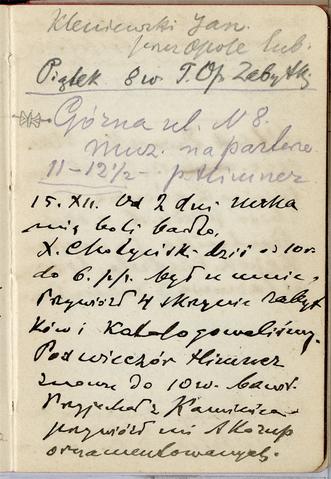 Kleniewski Jan.
przez Opole Lub.
Piątek 8 w. T. Op. Zabytk.
Górna ul. N 8.
muz. na parterze
11-12½- p. Himner
15.XII. Od 2 dni nerka
mię boli bardzo,
X. Chotyński dziś od 10 r.
do 6. p.p. był u mnie,
Przywiózł 4 skrzynie zabyt
ków i Katalogowaliśmy.
Pod wieczór Himner
znowu do 10 w. bawił.
Przyjechał z Kamieńca
przywiózł mi skorup
ornamentowanych.